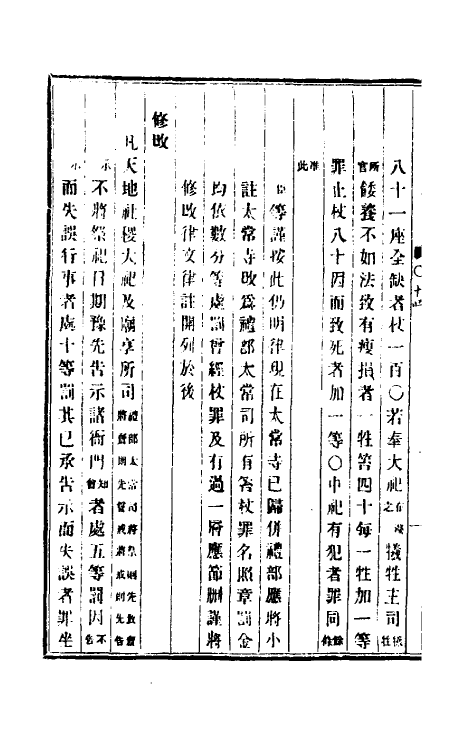 八十一座全缺者杖一百〇若奉大祀犧牲主司
官餧養不如法致有瘦損者一牲笞四十每一牲加一等
罪止杖八十因而致死者加一等〇中祀有犯者罪同餘
准此
臣等謹按此仍明律現在太常寺已歸併禮部應將小
註太常寺改爲禮部太常司所有笞杖罪名照章罰金
均依數分等處罰曾經杖罪及有過一層應節刪謹將
修改律文律註開列於後
修改
凡天地社稷大祀及廟享所司禮部太常司將祭則先致齋將齋則先誓戒將戒則先告示
不將祭祀日期豫先告示諸衙門知會者處五等罰因不告示
而失誤行事者處十等罰其已承告示而失誤者罪坐